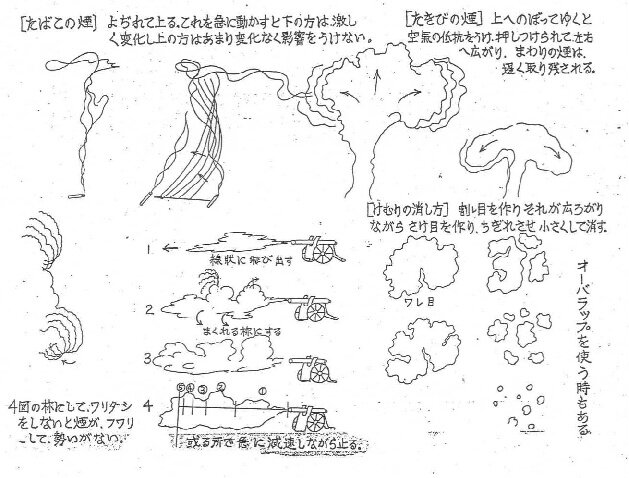 [たばこの煙] よぢれて上る。これを急に動かすと下の方は、激し
く変化し上の方はあまり変化なく影響をうけない。
[たきびの煙] 上へのぼってゆくと
空氣の低抗をうけ、押しつけられて、左右
へ広がり、まわりの煙は、
遅く取り残される。
[けむりの消し方] 割レ目を作りそれが広ろがり
ながらさけ目を作り、ちぎれさせ小さくして消す。
1
線状に飛び出す
2
まくれる様にする
3
⑤④③ ② ①
4
或る所で急に減速しながら止る。
4図の様にして、ワリダシ
をしないと煙が、フワリ
して、勢いがない。
ワレ目
オーバラップを使う時もある